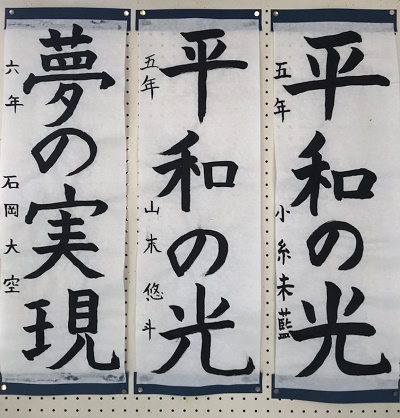 平和の光
五年 小糸未藍
平和の光
五年 山末悠斗
夢の実現
六年 石岡大空